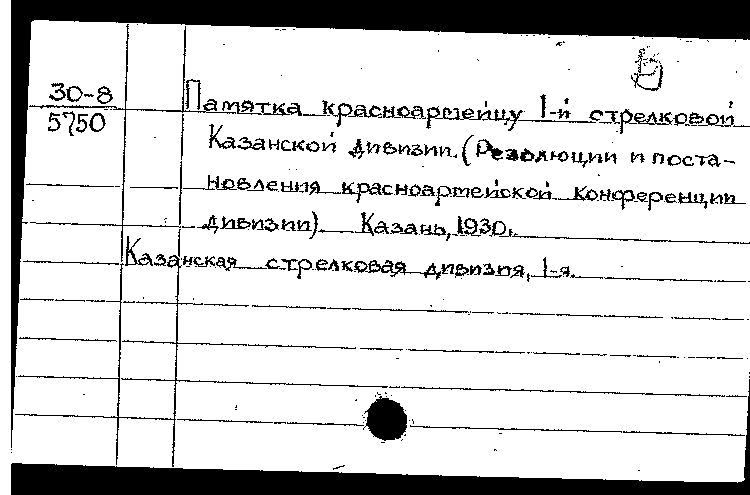 30-8
5750
Памятка красноармейцу 1-й стрелковой
Казанской дивизии. (Резолюции и поста-
новления красноармейской конференции
дивизии). Казань, 1930.
Казанская стрелковая дивизия, 1-я.